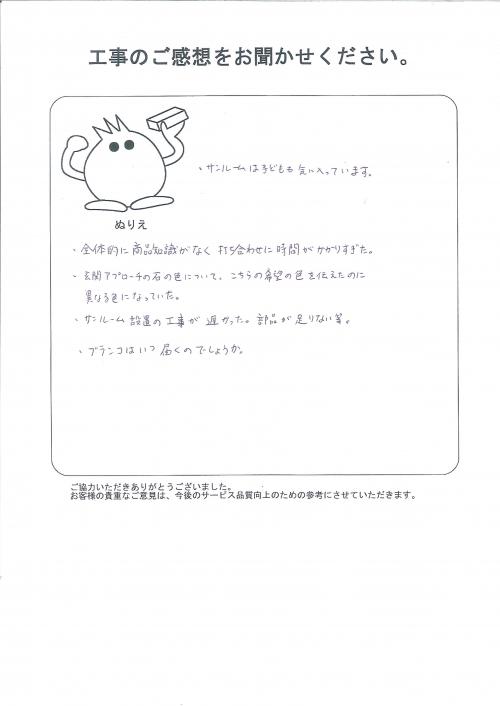 工事のご感想をお聞かせください。
・サンルームは子どもも気に入っています。
ぬりえ
・全体的に商品知識がなく打ち合わせに時間がかかりすぎた。
・玄関アプローチの石の色について、こちらの希望の色を伝えたのに
異なる色になっていた。
・サンルーム設置の工事が遅かった。部品が足りない等。
・ブランコはいつ届くのでしょうか。
ご協力いただきありがとうございました。
お客様の貴重なご意見は、今後のサービス品質向上のための参考にさせていただきます。